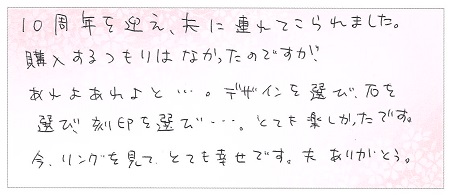 10周年を迎え、夫に連れてこられました。
購入するつもりはなかったのですが
あれよあれよと…。デザインを選び、石を
選び、刻印を選び…。とても楽しかったです。
今、リングを見て、とても幸せです。夫ありがとう。